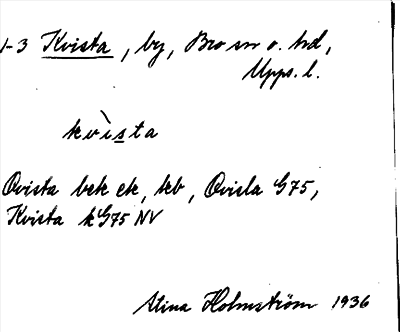 1-3 Kvista, by, Bro sn o. hd,
Upps. l.
kvìsta
Qvista bek ek, kb, Qvisla G75,
Kvista k G75 NV
Stina Holmström 1936